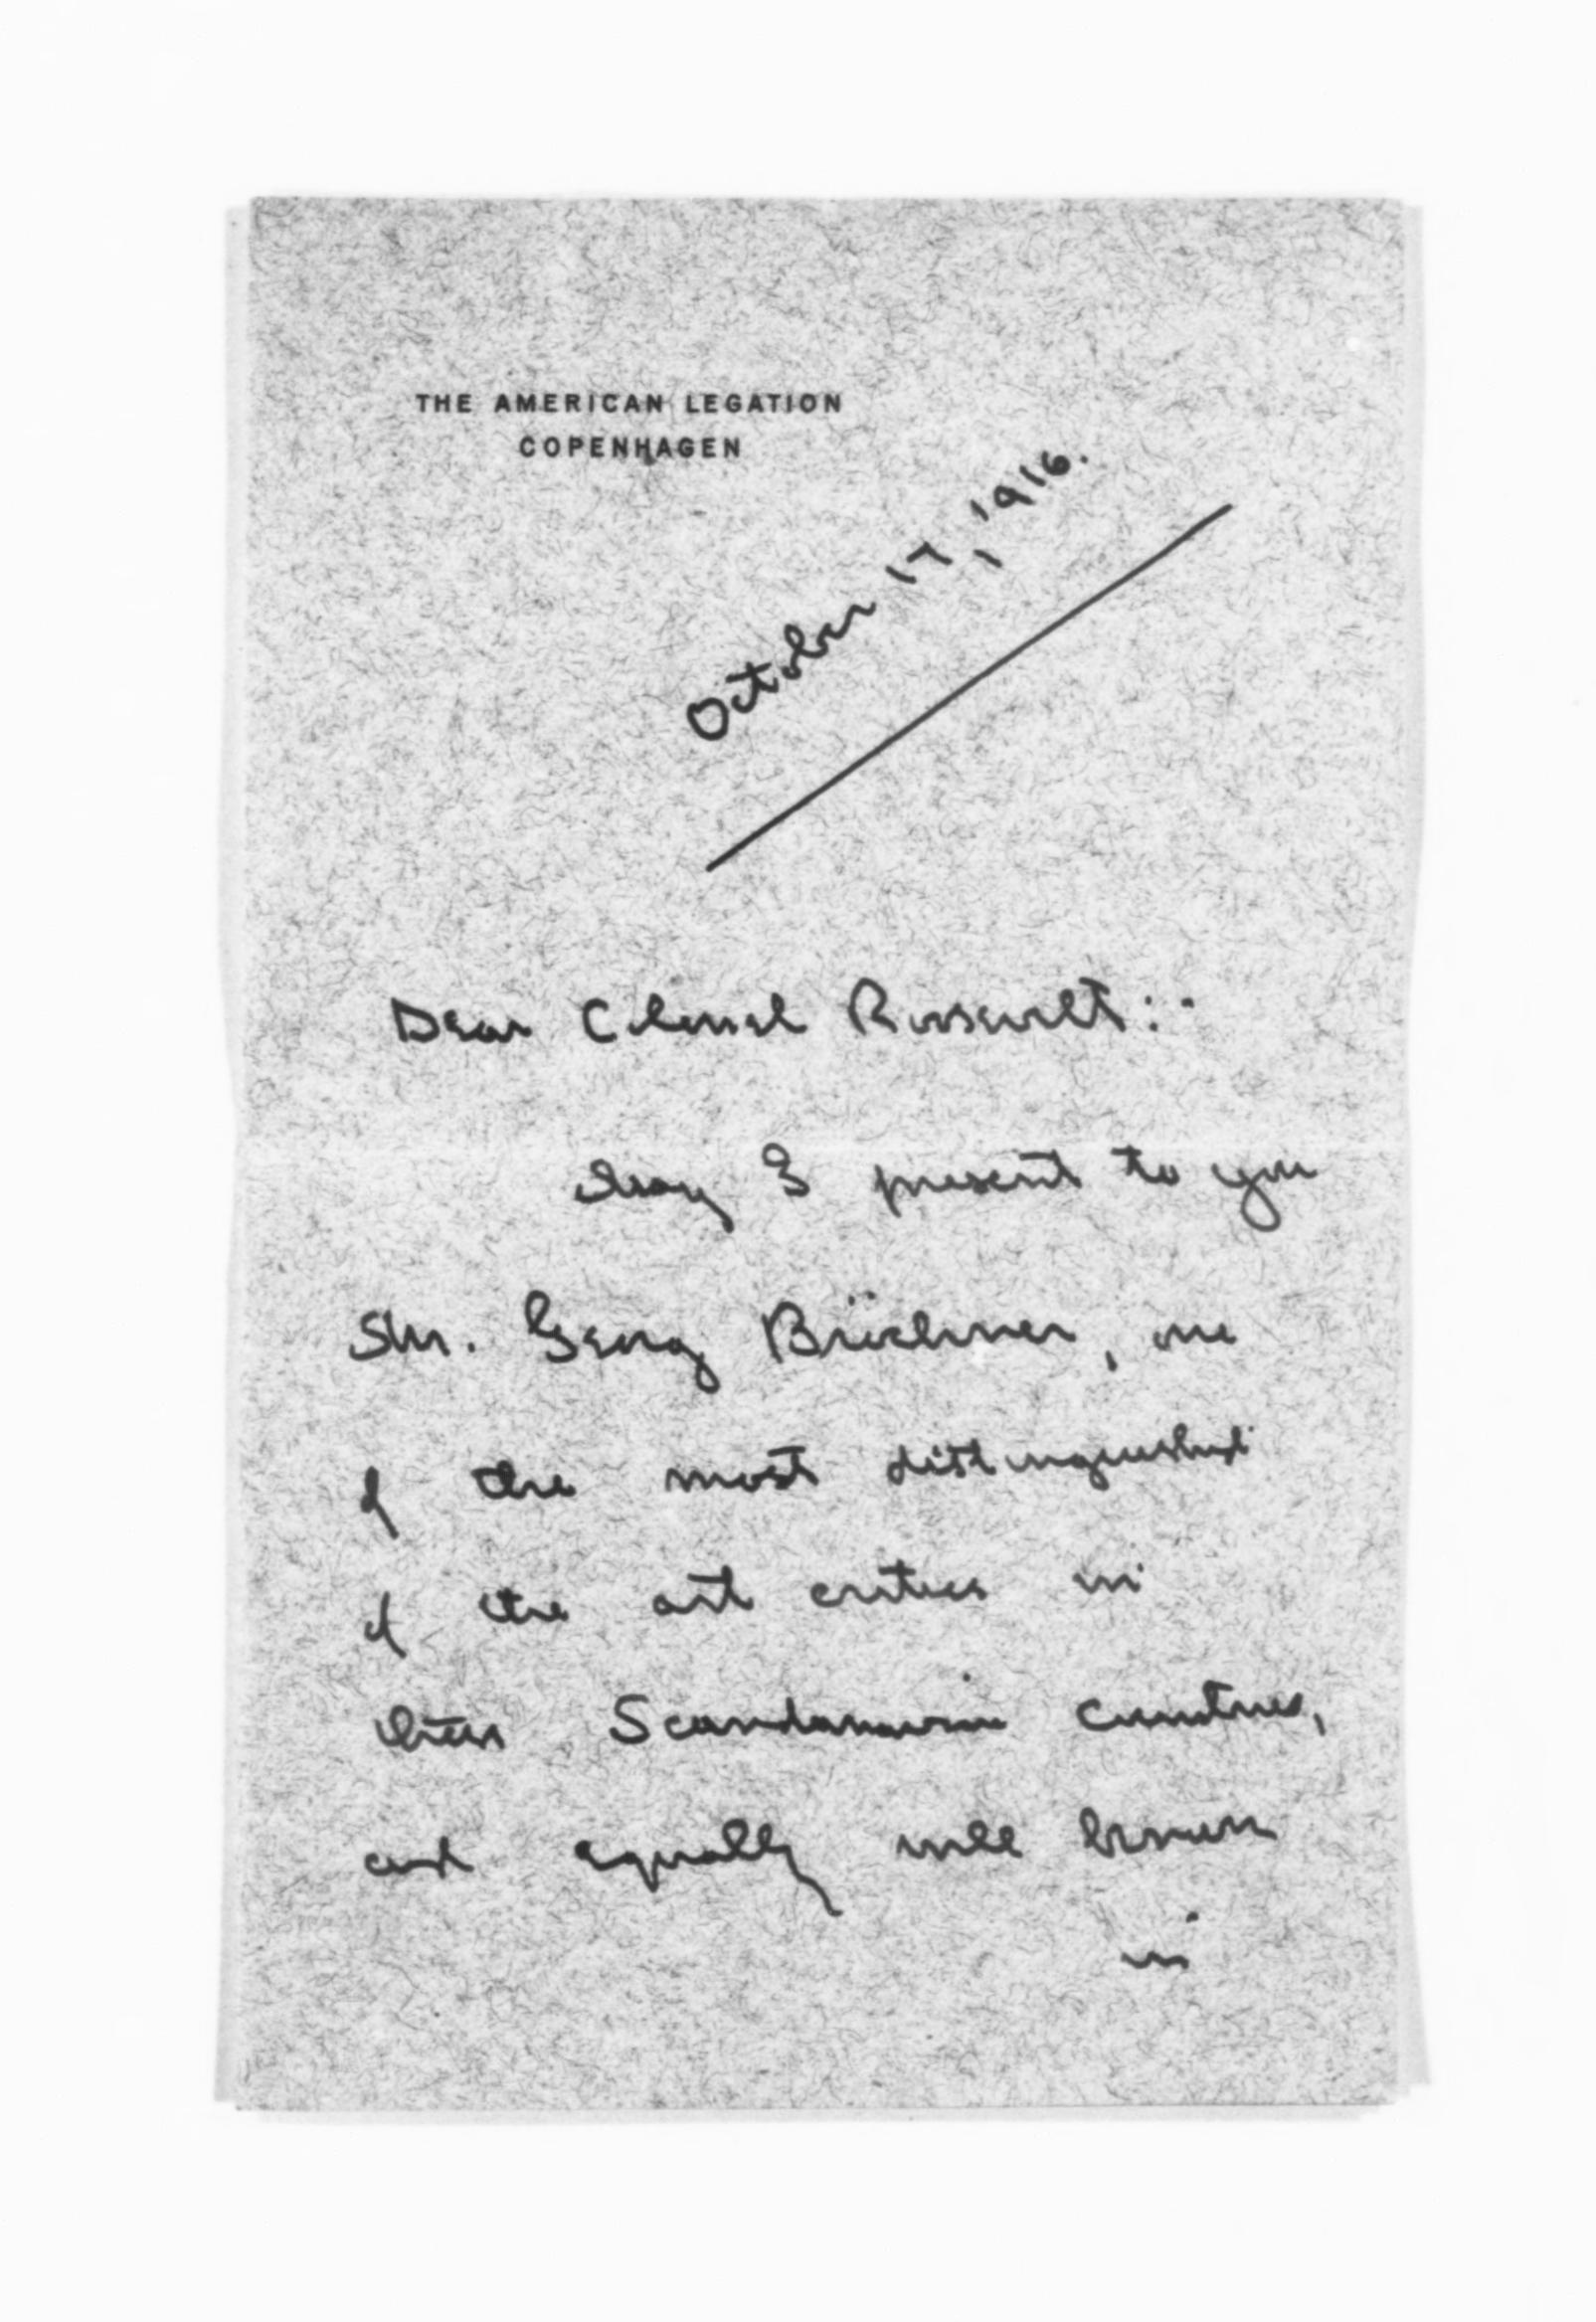 THE AMERICAN LEGATION
COPENHAGEN
October 17, 1916.
Dear Colonel Roosevelt:-
May I present to you
Mr. Georg Bröchner, one
of the most distinguished
of the art critics in
these Scandanavian countries,
and equally well known
in